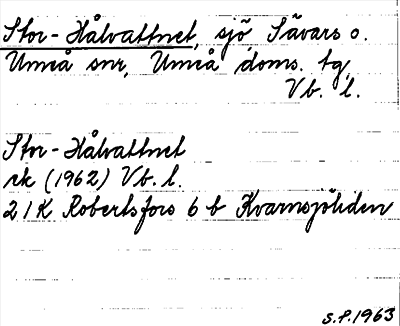 Stor-Hålvattnet, sjö Sävars o.
Umeå snr, Umeå doms. tg,
Vb. l.
Stor-Hålvattnet
rk (1962) Vb. l.
21K Robertsfors 6 b Kvarnsjöliden
S.P. 1963